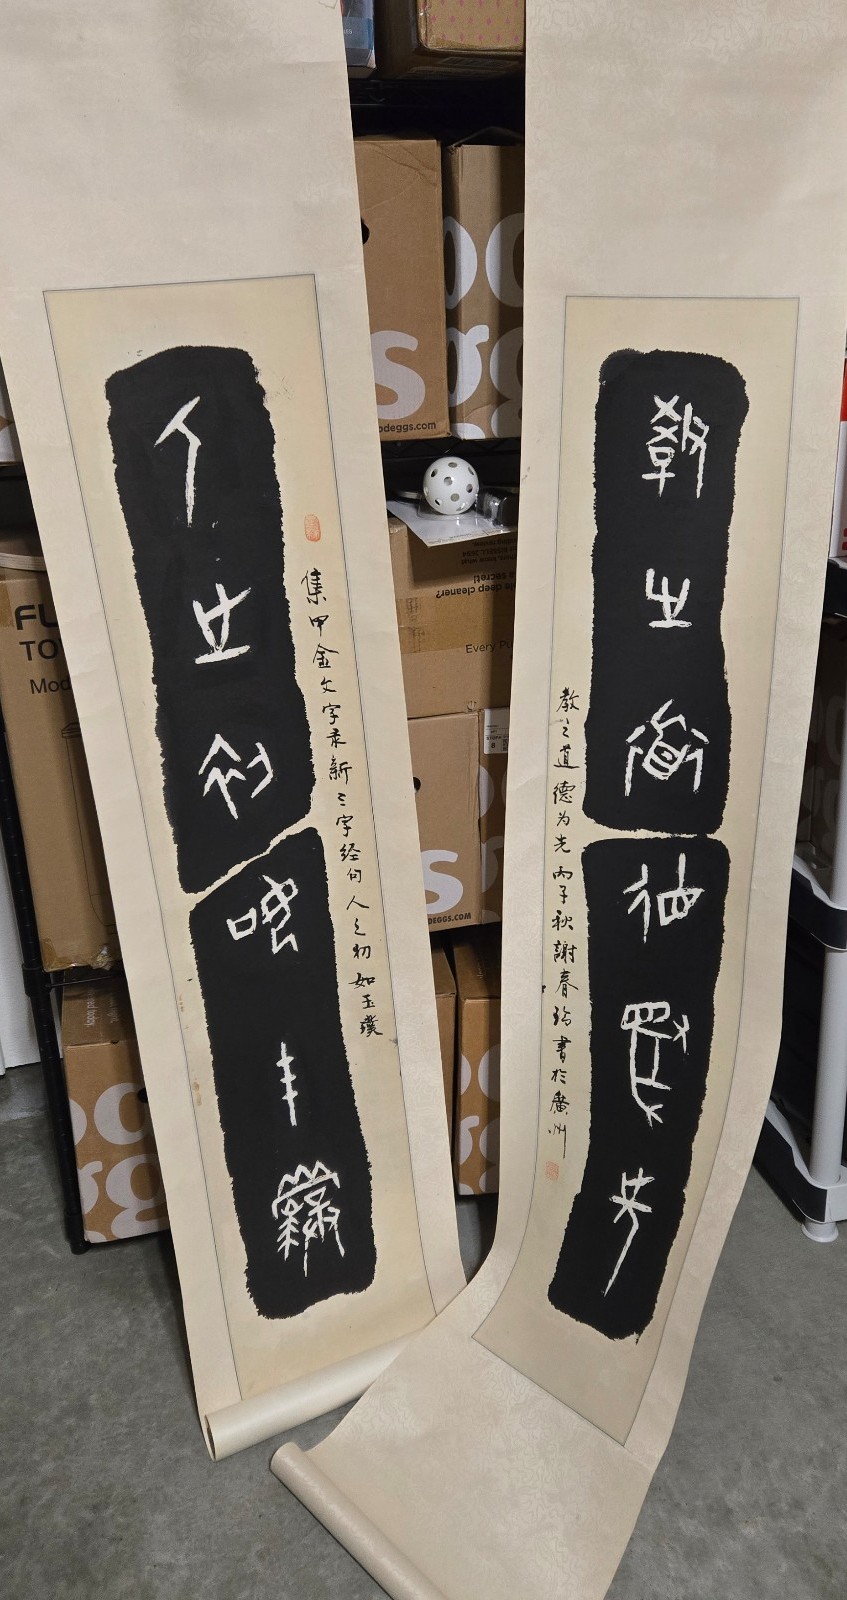 人之初如玉璞
集甲金文字录新三字经句人之初如玉璞
教之道德为先
教之道德为先丙子秋謝春書於廣州
odeggs.com
secret!
deep cleaner?
Every Pu
DEGGS.COM
FU
TO
Mod